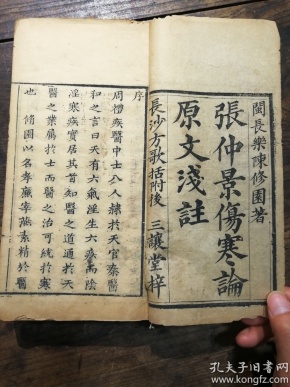 閩長樂陳修園著
張仲景傷寒論
原文淺註
長沙方歌括附後 三讓堂梓
序
周禮疾醫中士八人隸於天官秦醫
和之言曰天有六氣淫生六疾而陰
淫寒疾實居其首知醫之道通於天
醫之業屬於士而醫之治可統於寒
也 修園以名孝廉宰燕素精於醫
孔夫子旧书网
kongfz.com